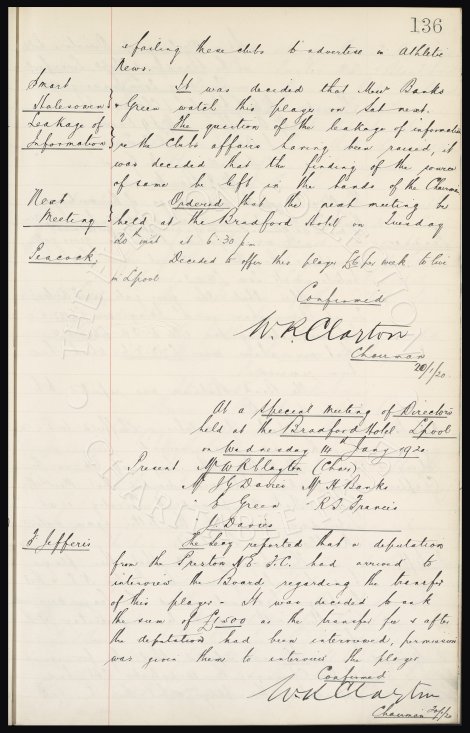 136
& failing these clubs to advertise in Athletic
News.
Smart
Halesowen
It was decided that Messrs Banks
& Green watch this player on Sat next.
Leakage of
Information
The question of the leakage of information
re the Clubs affairs having been raised, it
was decided that the finding of the source
of same be left in the hands of the Chairman
Next
Meeting
Ordered that the next meeting be
held at the Bradford Hotel on Tuesday
20th inst at 6.30 pm
Peacock.
Decided to offer this player £6 per week to live
in Lpool
Confirmed
W.R. Clayton
Chairman
20/1/20.
At a Special Meeting of Directors
held at the Bradford Hotel Lpool
on Wednesday 14th Jany 1920
Present Mr W R Clayton (Chair)
Mr J G Davies Mr H Banks
" Green " R. T. Francis
" J Davies
F Jefferis
The Secy reported that a deputation
from the Preston N E F.C. had arrived to
interview the Board regarding the transfer
of this player - It was decided to ask
the sum of £1500 as the transfer fee & after
the deputation had been interviewed, permission
was given them to interview the player
Confirmed
W R Clayton
Chairman 20/1/20